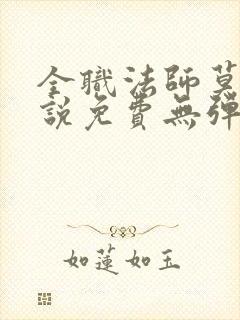 全職法師莫
說免費無彈
如蓮如玉